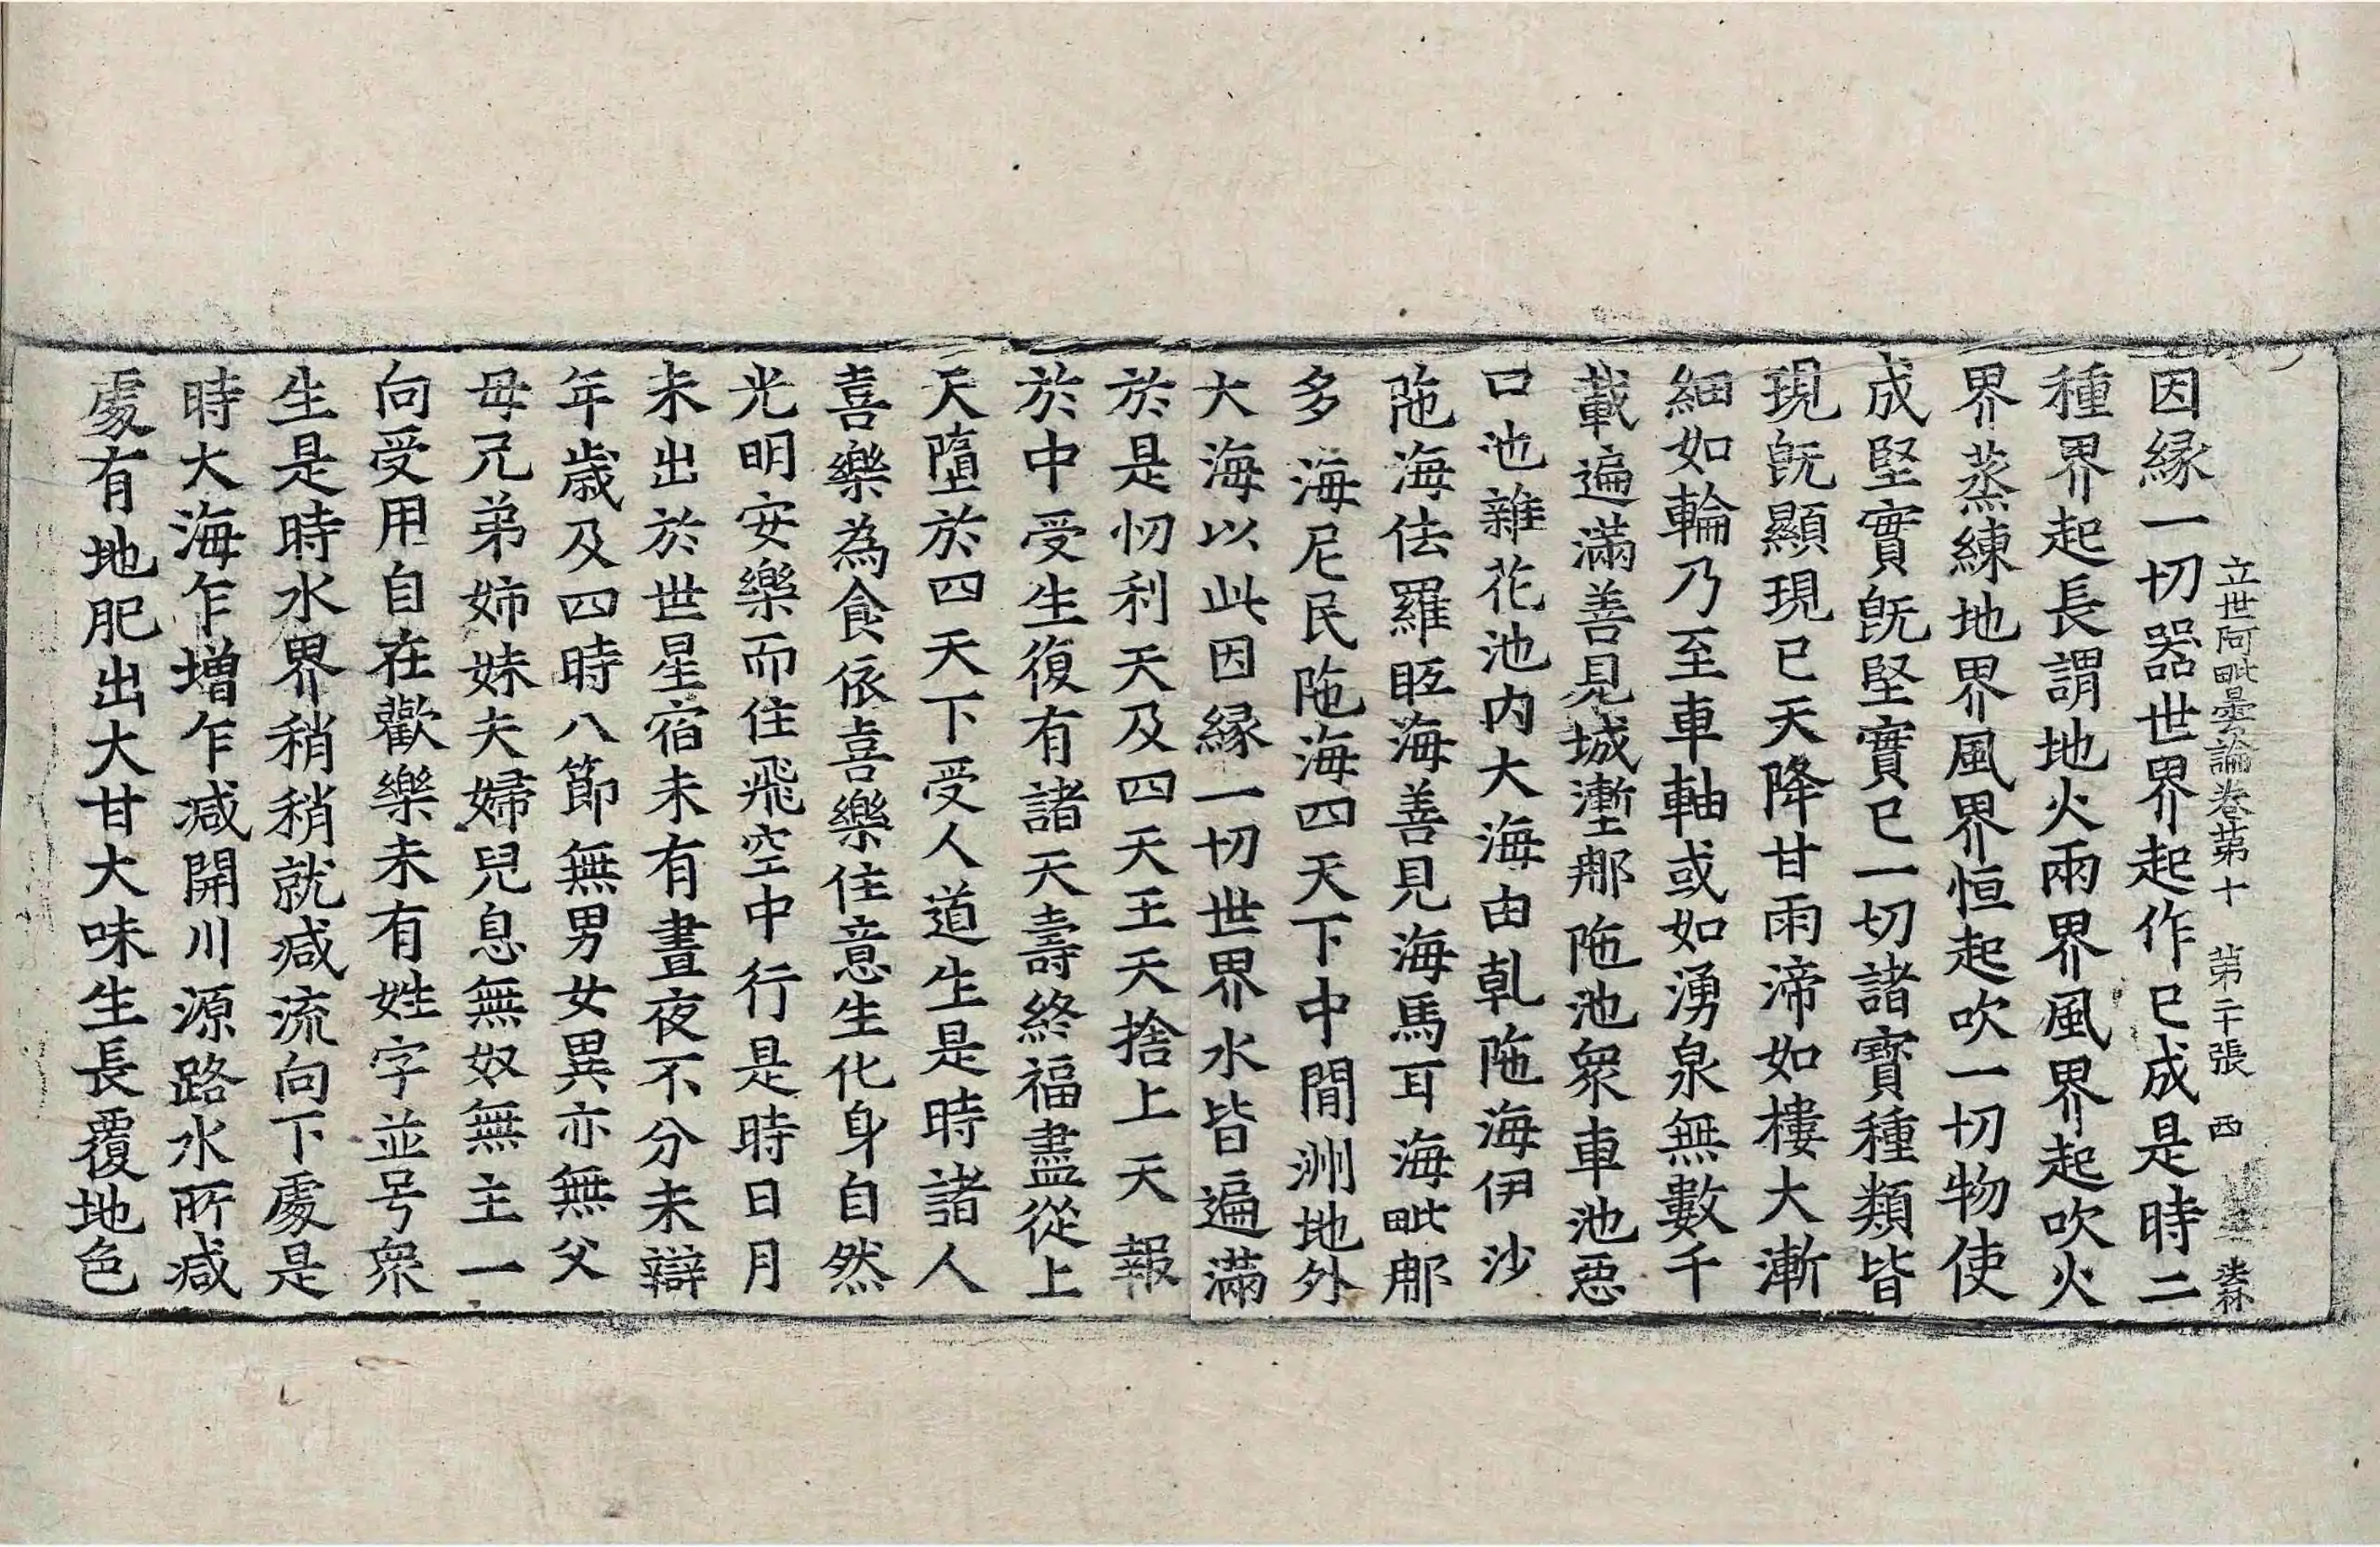 立世阿毗曇論卷第十 第二十張 西
因縁一切器世界起作已成是時二
種界起長謂地火兩界風界起吹火
界蒸練地界風界恒起吹一切物使
成堅實旣堅實已一切諸寳種類皆
現旣顯現已天降甘雨渧如樓大漸
細如輪乃至車軸或如湧泉無數千
載遍滿善見城壍那陁池衆車池惡
口池雜花池内大海由乹陁海伊沙
陁海佉羅眰海善見海馬耳海毗那
多海尼民陁海四天下中閒洲地外
大海以此因縁一切世界水皆遍滿
於是忉利天及四天王天捨上天報
於中受生復有諸天壽終福盡從上
天墮於四天下受人道生是時諸人
喜樂為食依喜樂住意生化身自然
光明安樂而住飛空中行是時日月
未出於世星宿未有晝夜不分未辯
年歲及四時八節無男女異亦無父
母兄弟姉妹夫婦兒息無奴無主一
向受用自在歡樂未有姓字並号衆
生是時水界稍稍就减流向下處是
時大海乍增乍减開川源路水所减
處有地肥出大甘大味生長覆地色